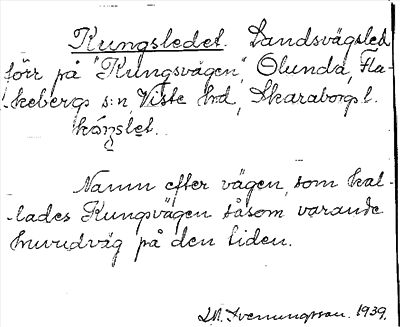 Kungsledet. Landsvägsled
förr på "Kungsvägen", Olunda, Fla-
kebergs s:n, Viste hrd, Skaraborgs l.
Namn efter vägen, som kal-
lades Kungsvägen såsom varande
huvudväg på den tiden.
1939.